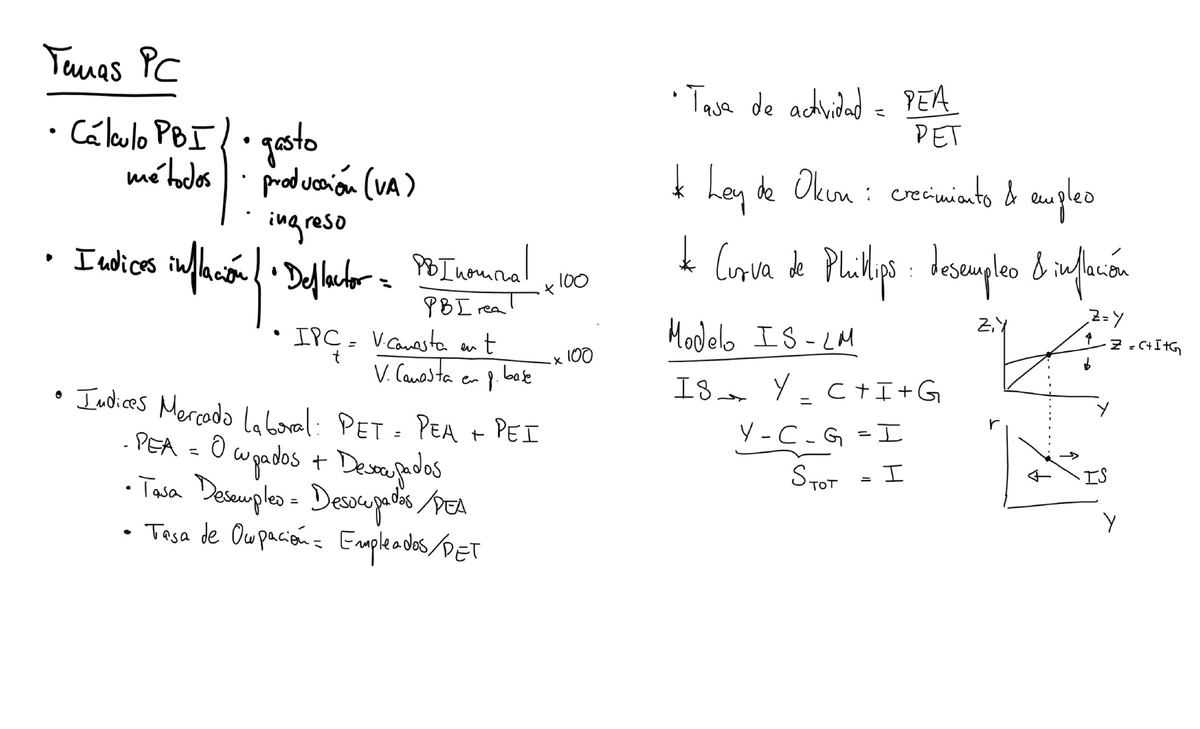 Temas PC
• Cálculo PBI
métodos
• gasto
• producción (VA)
• ingreso
• Indices inflación
• Deflactor = PBI nominal / PBI real x 100
• IPC t = V. Canasta en t / V. Canasta en p. base x 100
• Indices Mercado Laboral: PET = PEA + PEI
- PEA = Ocupados + Desocupados
• Tasa Desempleo = Desocupados/PEA
• Tasa de Ocupación = Empleados/PET
• Tasa de actividad = PEA / PET
* Ley de Okun: crecimiento & empleo
* Curva de Phillips: desempleo & inflación
Modelo IS-LM
IS → Y = C + I + G
Y - C - G = I
S TOT = I
Z,Y
Z=Y
Z = C+I+G
Y
r
IS
Y